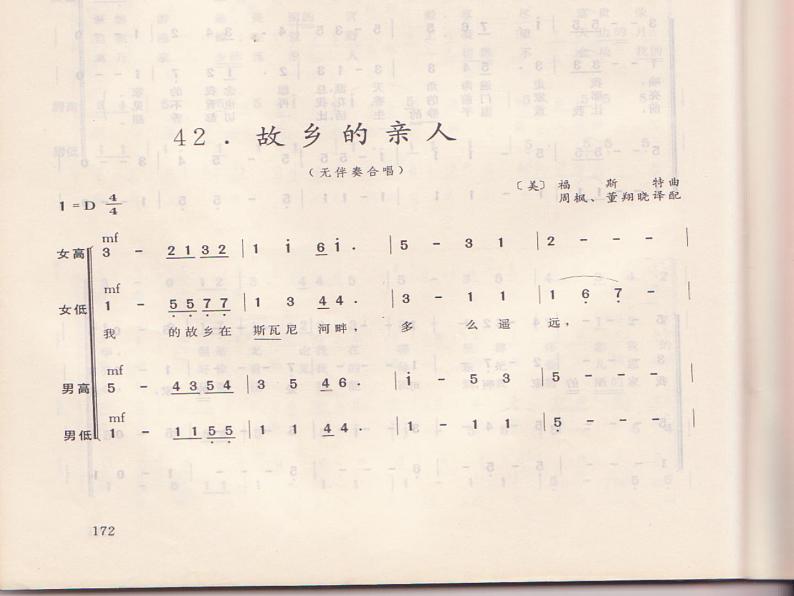 42．故乡的亲人
（无伴奏合唱）
〔美〕福斯特曲
周枫、董翔晓译配
1=D 4/4
mf
女高 3 - 2132 | 1 i 6i· | 5 - 3 1 | 2 - - - |
mf
女低 1 - 5577 | 1 3 44· | 3 - 1 1 | 1 6 7 - |
我 的故乡在 斯瓦尼 河畔， 多 么遥 远，
mf
男高 5 - 4354 | 3 5 46· | i - 5 3 | 5 - - - |
mf
男低 1 - 1155 | 1 1 44· | 1 - 1 1 | 5 - - - |
172